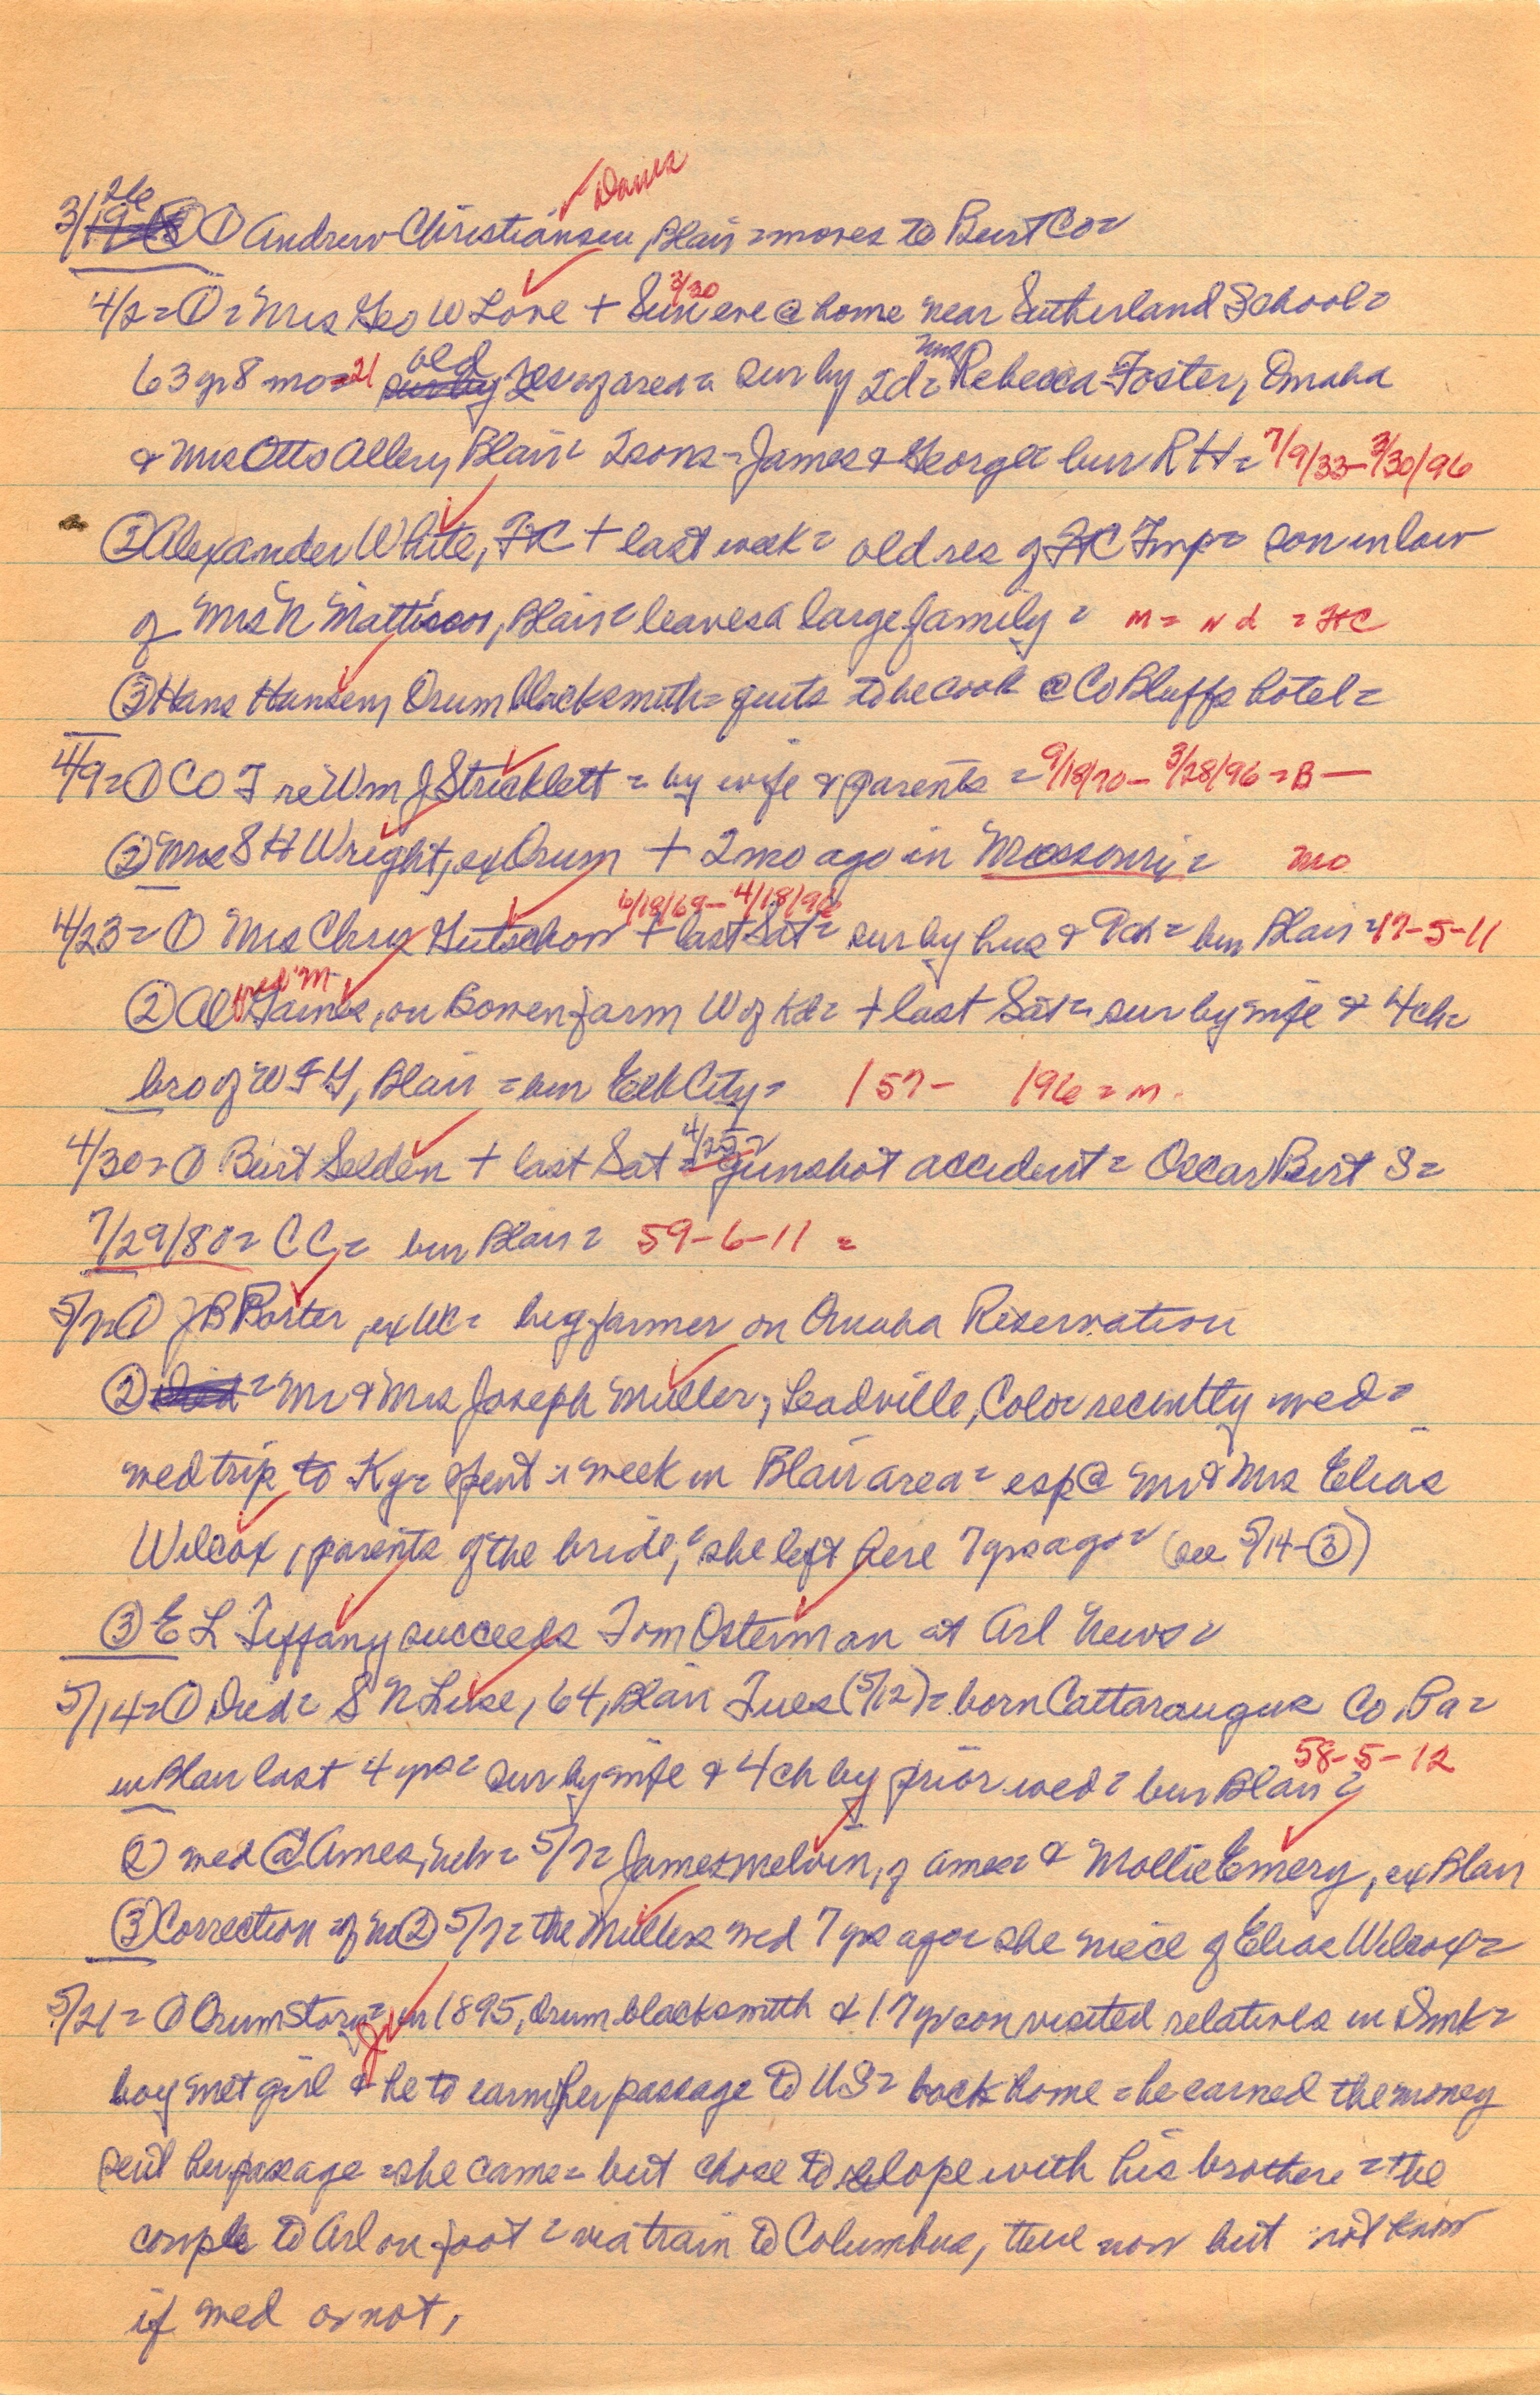 ✓ Danes
3/26 ① Andrew Christiansen, Blair = moves to Burt Co =
4/2 = ① = Mrs Geo W Love + Sun 3/30 eve @ home near Sutherland School =
63 yr 8 mo = 21 old res of area = sur by 2d = Mrs Rebecca Foster, Omaha
& Mrs Otto Allery, Blair = 2 sons = James & George = bur RH = 7/9/33 - 3/30/96
② Alexander White, FC + last week = old res of FC Twp = son in law
of Mrs N Mattison, Blair = leaves a large family = m = nd = FC
③ Hans Hansen, Orum blacksmith = quits to be cook @ Co Bluffs hotel =
4/9 = ① CO T re Wm J Stricklett = by wife & parents = 9/18/70 - 3/28/96 = B —
② Mrs S H Wright, ex Orum + 2 mo ago in Missouri = mo
6/18/69 - 4/18/96
4/23 = ① Mrs Chas Gutschow + last Sat = sur by hus & 9 ch = bur Blair = 17-5-11
② Alfred M Gaines, on Bowen farm W of Kd = + last Sat = sur by wife & 4 ch =
bro of W F G, Blair = bur Elk City = /57 - /96 = m
4/30 = ① Burt Selden + last Sat = 4/25 = gunshot accident = Oscar Burt S =
7/29/80 = CC, = bur Blair = 59-6-11 =
5/7 = ① J B Porter, ex WC = big farmer on Omaha Reservation
② = Mr & Mrs Joseph Muller, Leadville, Colo = recently wed =
wed trip to Ky = spent 1 week in Blair area = esp @ Mr & Mrs Elias
Wilcox, parents of the bride, = she left here 7 yrs ago = (see 5/14-③)
③ E L Tiffany succeeds Tom Osterman at Arl News =
5/14 = ① Died = S N Luse, 64, Blair Tues (5/12) = born Cattaraugus Co, Pa =
in Blair last 4 yrs = sur by wife & 4 ch by prior wed = bur Blair = 58-5-12
② wed @ Ames, Neb = 5/7 = James Melvin, of Ames = & Mollie Emery, ex Blair
③ Correction of No ② 5/7 = the Mullers wed 7 yrs ago = she niece of Elias Wilcox =
5/21 = ① Orum Story = in 1895, Orum blacksmith & 17 yr son visited relatives in Dmk =
boy met girl & he to earn her passage to US = back home = he earned the money
sent her passage = she came = but chose to elope with his brother = the
couple to Arl on foot = via train to Columbus, there now but not know
if wed or not,